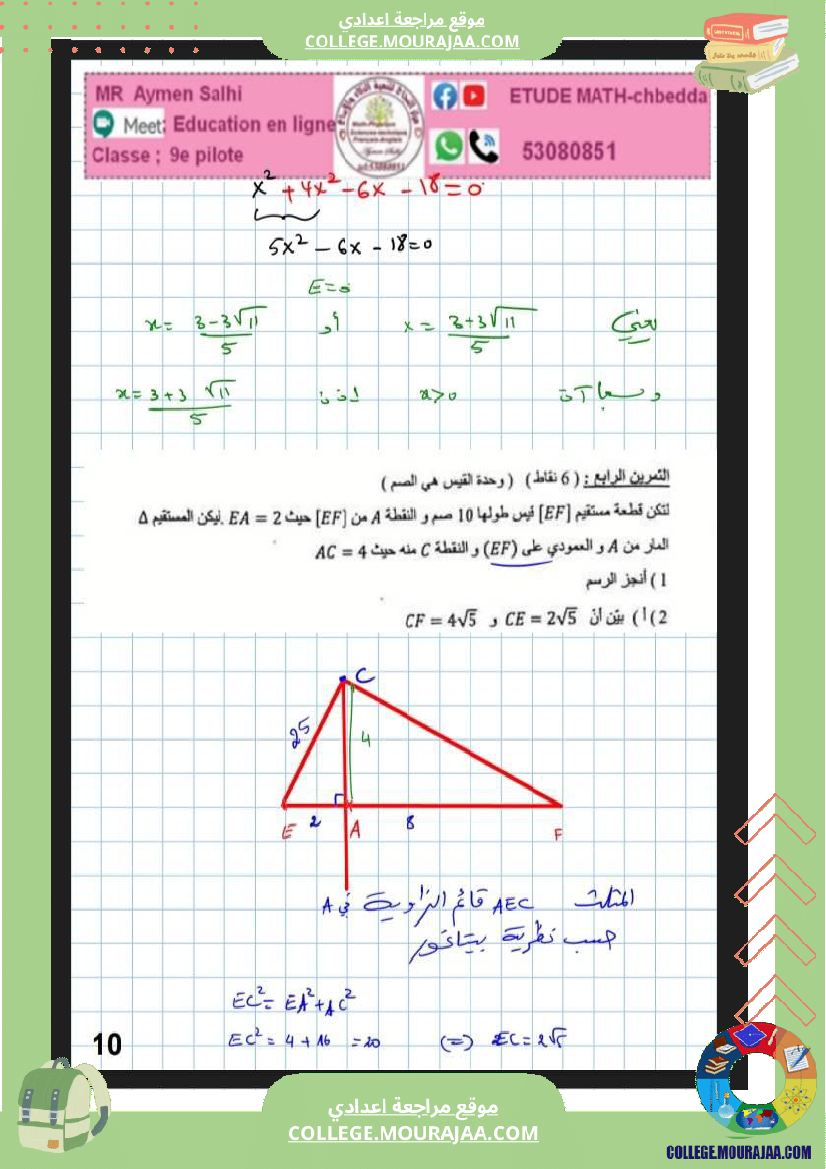 موقع مراجعة اعدادي
COLLEGE.MOURAJAA.COM
MR Aymen Salhi
Meet: Education en ligne
Classe ; 9e pilote
ETUDE MATH-chbedda
53080851
x² + 4x² - 6x - 18 = 0
5x² - 6x - 18 = 0
E = 0
يعني x = (3+3√11)/5 أو x = (3-3√11)/5
و بما أن x > 0 إذن x = (3+3√11)/5
التمرين الرابع : ( 6 نقاط ) ( وحدة القيس هي الصم )
لتكن قطعة مستقيم [EF] قيس طولها 10 صم و النقطة A من [EF] حيث EA = 2 .ليكن المستقيم Δ
المار من A و العمودي على (EF) و النقطة C منه حيث AC = 4
1 ) أنجز الرسم
2) أ ) بيّن أن CE = 2√5 و CF = 4√5
C
25
4
E 2 A 8 F
المثلث AEC قائم الزاوية في A
حسب نظرية بيتاغور
EC² = EA² + AC²
EC² = 4 + 16 = 20 (=) EC = 2√5
10
موقع مراجعة اعدادي
COLLEGE.MOURAJAA.COM
COLLEGE.MOURAJAA.COM